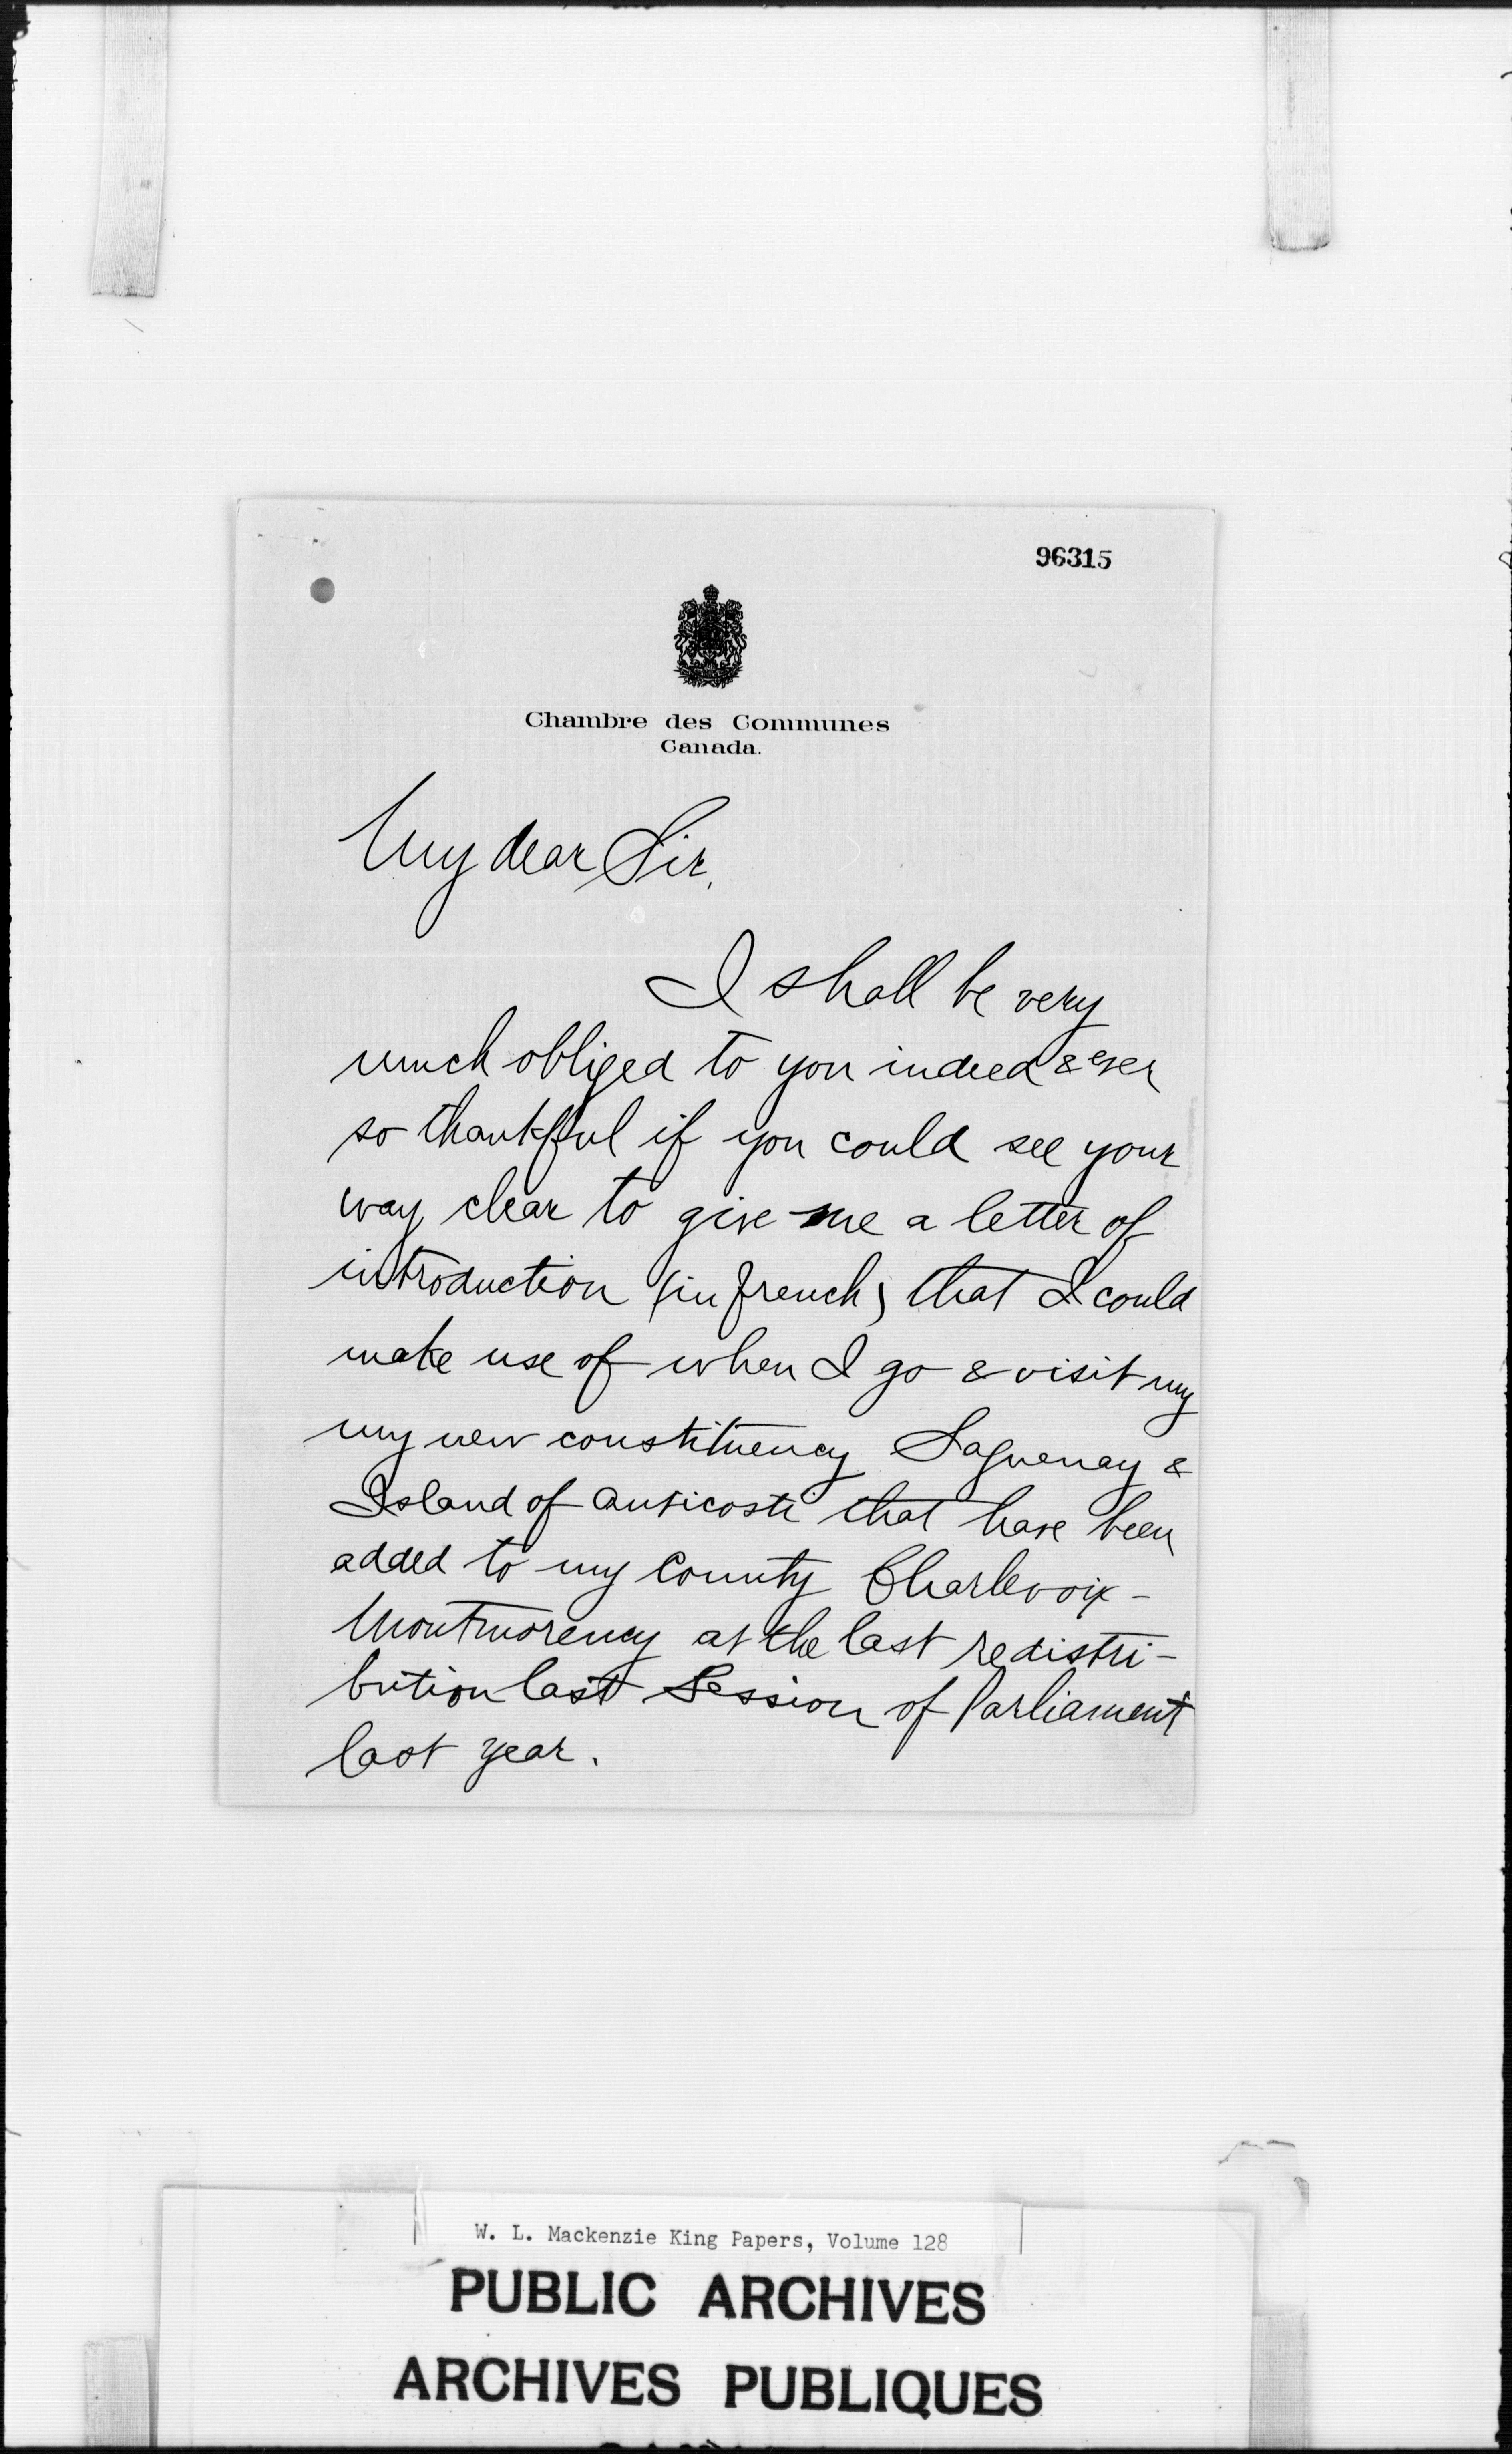 96315
Chambre des Communes
Canada.
My dear Sir,
I shall be very
much obliged to you indeed & ever
so thankful if you could see your
way clear to give me a letter of
introduction (in french) that I could
make use of when I go & visit my
my new constituency Saguenay &
Island of Anticosti that have been
added to my County Charlevoix -
Montmorency at the last redistri-
bution last Session of Parliament
last year.
W. L. Mackenzie King Papers, Volume 128
PUBLIC ARCHIVES
ARCHIVES PUBLIQUES